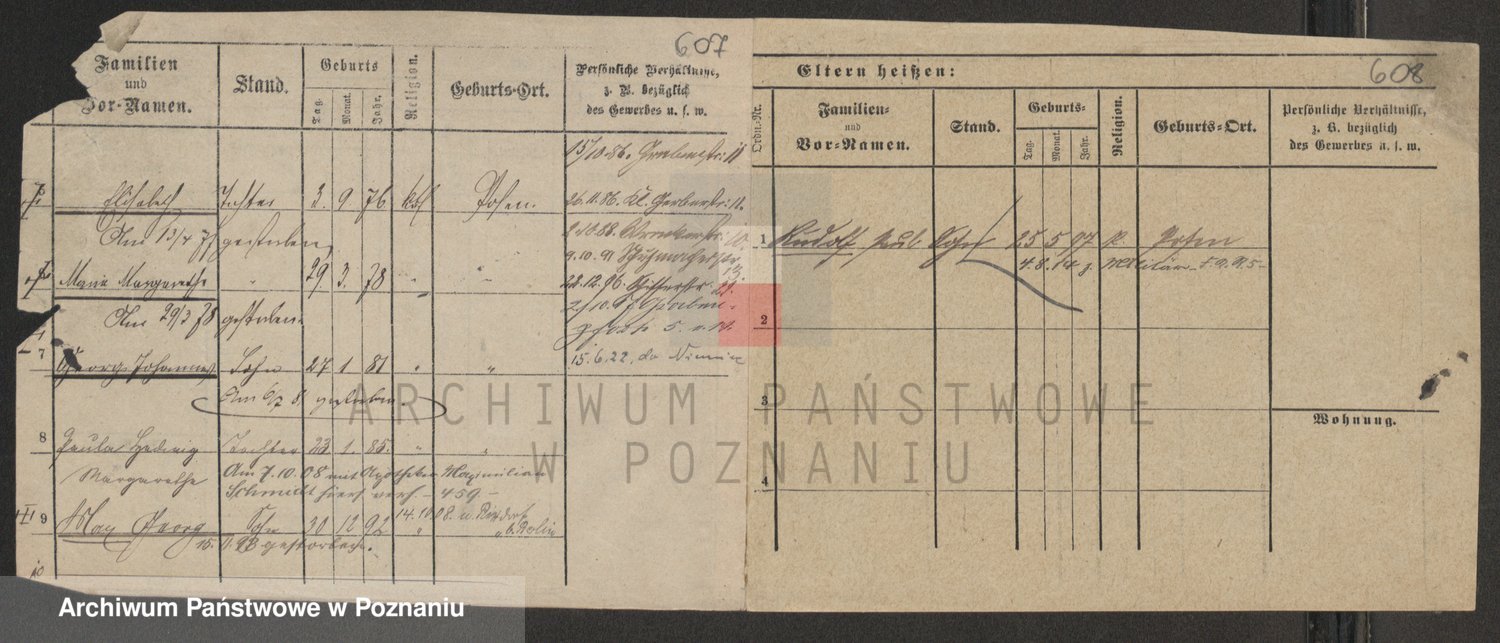 607
Familien
und
Vor-Namen.
Stand.
Geburts
Tag.
Monat.
Jahr.
Religion.
Geburts-Ort.
Persönliche Verhältnisse,
z. B. bezüglich
des Gewerbes u. s. w.
15/10.86. Grabenstr. 11
Elisabeth Tochter 3. 9 76 kth Posen.
26.11.86. Kl. Gerberstr.
Am 13/4 77 gestorben
9.10.91 Schuhmacherstr.
Marie Margarethe " 29. 3. 78 " "
22.12.96. Ritterstr.
Am 29/3 78 gestorben
7
Georg Johannes Sohn 27 1 81 " "
15.6.22.
8
Paula Hedwig Tochter 23 1 85. " "
Margarethe
Am 7.10.08 mit Apotheker Maximilian
Schmidt hier verh - 459 -
9
Max Georg Sohn 30 12 92 "
14.10.08. n. Rixdorf
b. Berlin
gestorben.
10
608
Eltern heißen:
Ordn.-Nr.
Familien-
und
Vor-Namen.
Stand.
Geburts-
Tag.
Monat.
Jahr.
Religion.
Geburts-Ort.
Persönliche Verhältnisse,
z. B. bezüglich
des Gewerbes u. s. w.
1 Rudolf Paul Sohn 25 5 97 k. Posen
4.8.14 z. Militär
2
3
Wohnung.
4
ARCHIWUM PAŃSTWOWE
W POZNANIU
Archiwum Państwowe w Poznaniu